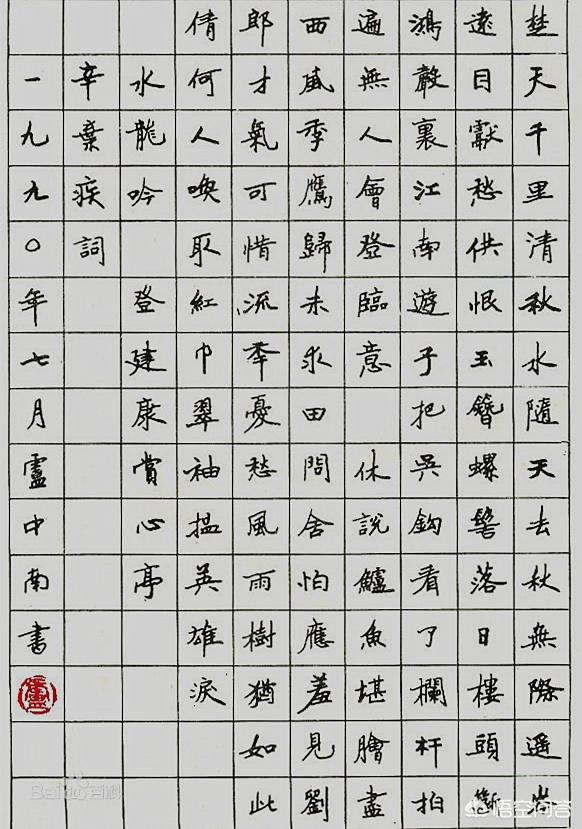 楚天千里清秋水隨天去秋無際遙岑
遠目獻愁供恨玉簪螺髻落日樓頭斷
鴻聲裏江南遊子把吳鈎看了欄杆拍
遍無人會登臨意 休說鱸魚堪膾盡
西風季鷹歸未求田問舍怕應羞見劉
郎才氣可惜流年憂愁風雨樹猶如此
倩何人喚取紅巾翠袖搵英雄淚
水龍吟 登建康賞心亭
辛棄疾詞
一九九〇年七月盧中南書
Baidu百科
悟空问答